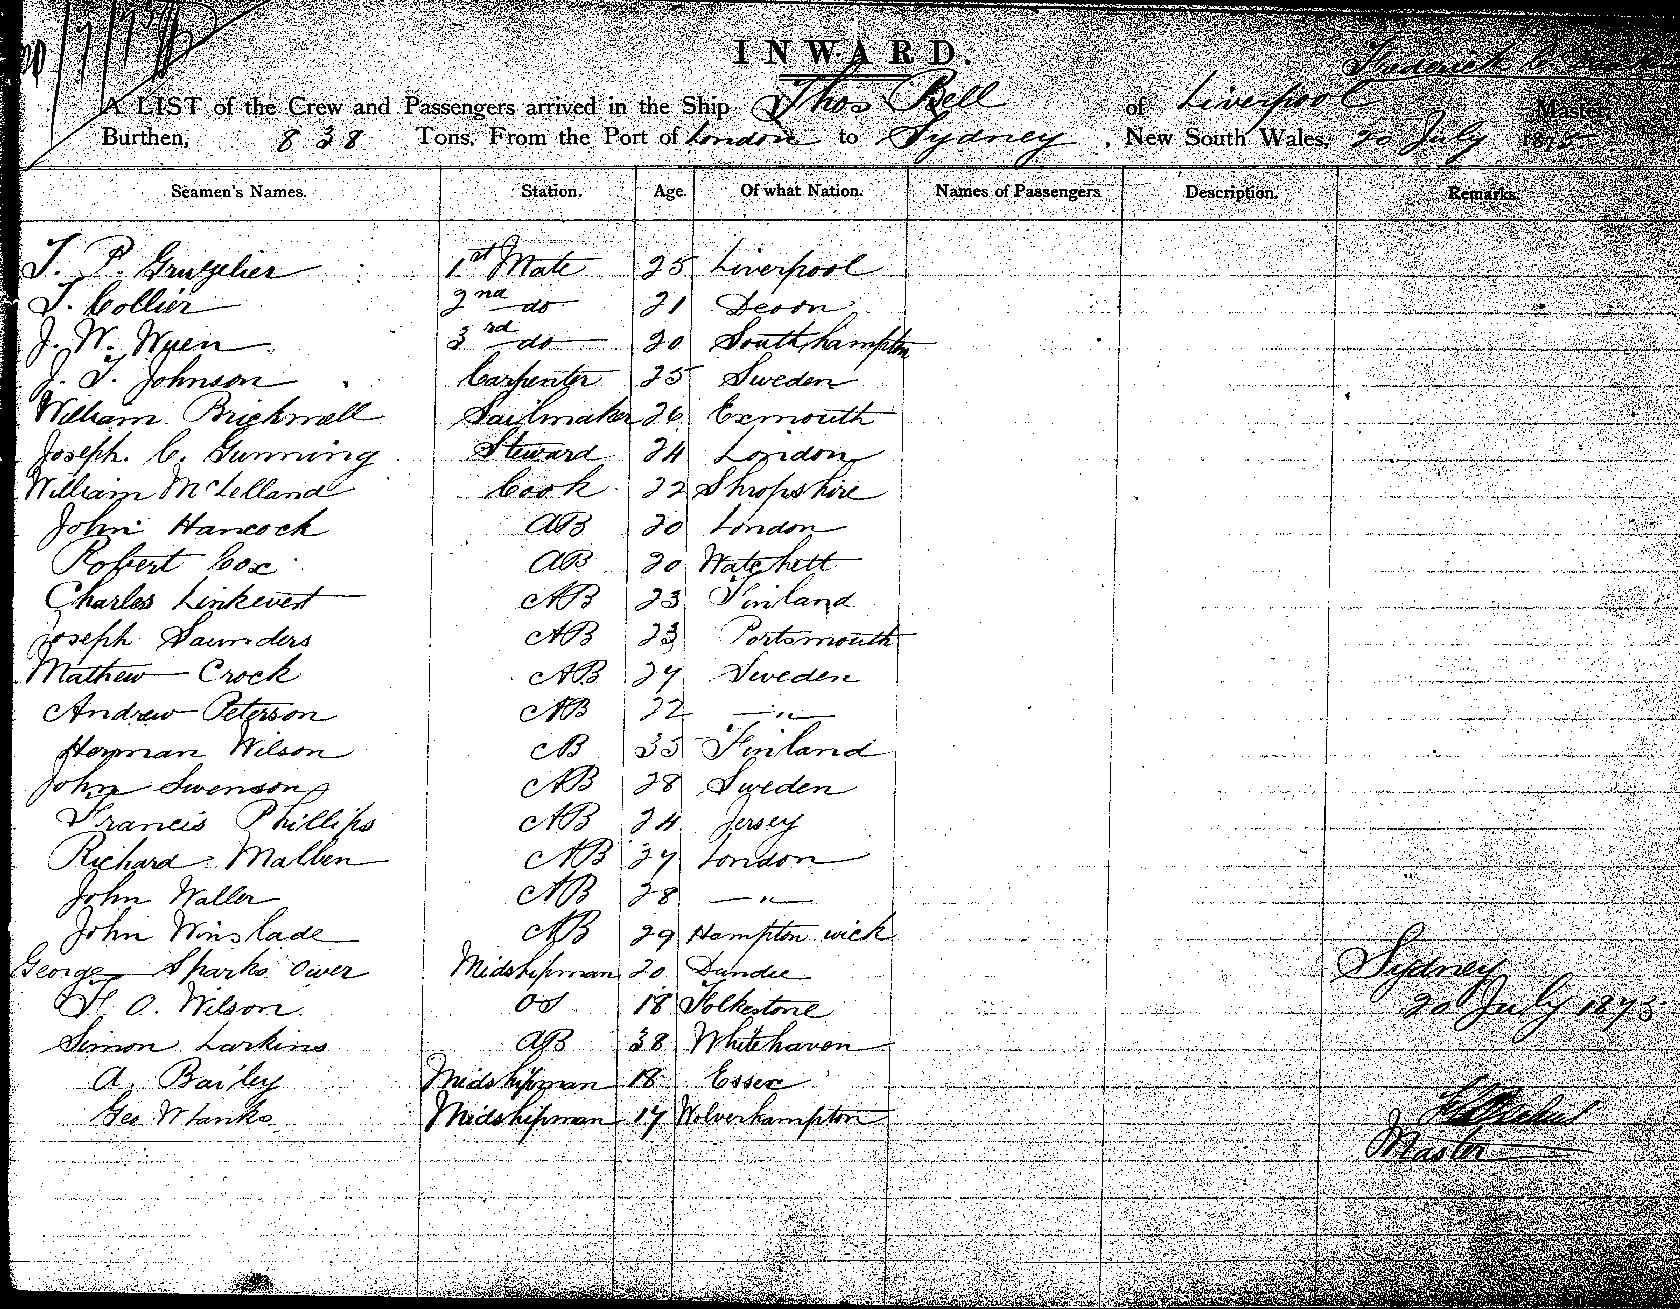 INWARD.
A LIST of the Crew and Passengers arrived in the Ship Thos Bell of Liverpool Frederick C Master,
Burthen, 838 Tons, From the Port of London to Sydney, New South Wales, 20 July 1875
Seamen's Names. Station. Age. Of what Nation. Names of Passengers Description. Remarks.
T. P. Gruzelier 1st Mate 25 Liverpool
T. Collier 2nd do 21 Devon
J. W. Wren 3rd do 20 Southhampton
J. T. Johnson Carpenter 25 Sweden
William Brickwell Sailmaker 26 Exmouth
Joseph. C. Gunning Steward 24 London
William McLelland Cook 22 Shropshire
John Hancock AB 20 London
Robert Cox AB 20 Watchett
Charles Linkevert AB 23 Finland
Joseph Saunders AB 23 Portsmouth
Mathew Crock AB 27 Sweden
Andrew Peterson AB 22 — " —
Herman Wilson AB 35 Finland
John Swenson AB 28 Sweden
Francis Phillips AB 24 Jersey
Richard Malben AB 27 London
John Waller AB 28 — " —
John Winslade AB 29 Hampton wick
George Sparks Midshipman 20 Dundee Sydney
F. O. Wilson OS 18 Folkestone 20 July 1875
Simon Larkins AB 38 Whitehaven
A. Bailey Midshipman 18 Essex
Geo Midshipman 17 Wolverhampton
Master